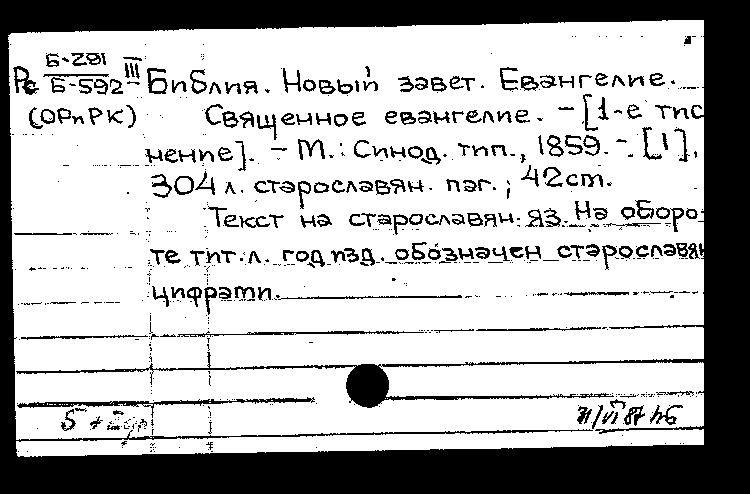 Рс Б-291 III
Б-592
Библия. Новый завет. Евангелие.
(ОРиРК) Священное евангелие. – [1-е тис
нение]. – М.: Синод. тип., 1859. – [1],
304 л. старославян. паг.; 42 см.
Текст на старославян. яз. На оборо-
те тит. л. год изд. обозначен старославян
цифрами.